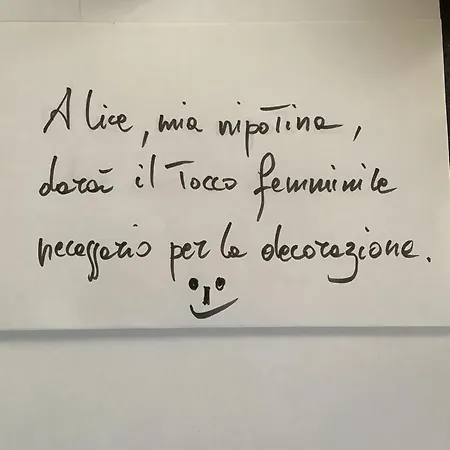 Alice, mia nipotina,
darà il tocco femminile
necessario per la decorazione.